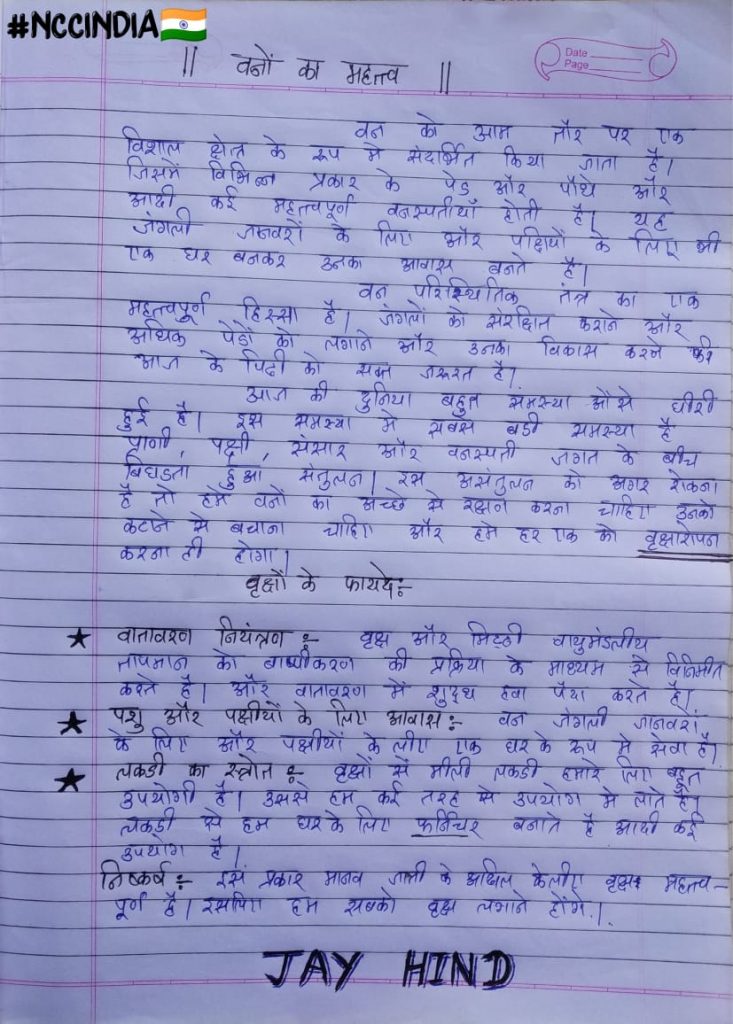 #NCCINDIA🇮🇳
Date
Page
|| वनों का महत्त्व ||
वन को आम तौर पर एक
विशाल क्षेत्र के रूप मे संदर्भित किया जाता है।
जिसमें विभिन्न प्रकार के पेड और पौधे और
आदी कई महत्त्वपूर्ण वनस्पतीयाँ होती है। यह
जंगली जानवरों के लिए और पक्षियों के लिए भी
एक घर बनकर उनका आवास बनते है।
वन परिस्थितिक तंत्र का एक
महत्त्वपूर्ण हिस्सा है। जंगलों को संरक्षित कराने और
अधिक पेडों को लगाने और उनका विकास करने की
आज के पिढी को सक्त जरूरत है।
आज की दुनिया बहुत समस्या औसे घीरी
हुई है। इस समस्या मे सबसे बडी समस्या है
पाणी, पक्षी, संसार और वनस्पती जगत के बीच
बिघडता हुआ संतुलन। इस असंतुलन को अगर रोकना
है तो हमे वनों का अच्छे से रक्षण करना चाहिए उनको
कटाने से बचाना चाहिए और हमे हर एक को वृक्षारोपन
करना ही होगा।
वृक्षों के फायदे:-
★ वातावरण नियंत्रण :- वृक्ष और मिट्टी वायुमंडलीय
तापमान को बाष्पीकरण की प्रक्रिया के माध्यम से विनिमीत
करते है। और वातावरण में शुद्ध हवा पैदा करते है।
★ पशु और पक्षीयों के लिए आवास :- वन जंगली जानवरों
के लिए और पक्षीयों के लीए एक घर के रूप मे सेवा है।
★ लकडी का स्त्रोत :- वृक्षों से मीली लकडी हमारे लिए बहुत
उपयोगी है। उससे हम कई तरह से उपयोग मे लाते है।
लकडी से हम घर के लिए फर्निचर बनाते है आदी कई
उपयोग है।
निष्कर्ष :- इस प्रकार मानव जाती के केलीए वृक्ष महत्त्व-
पूर्ण है। इसलिए हम सबको वृक्ष लगाने होंगे.।
JAY HIND